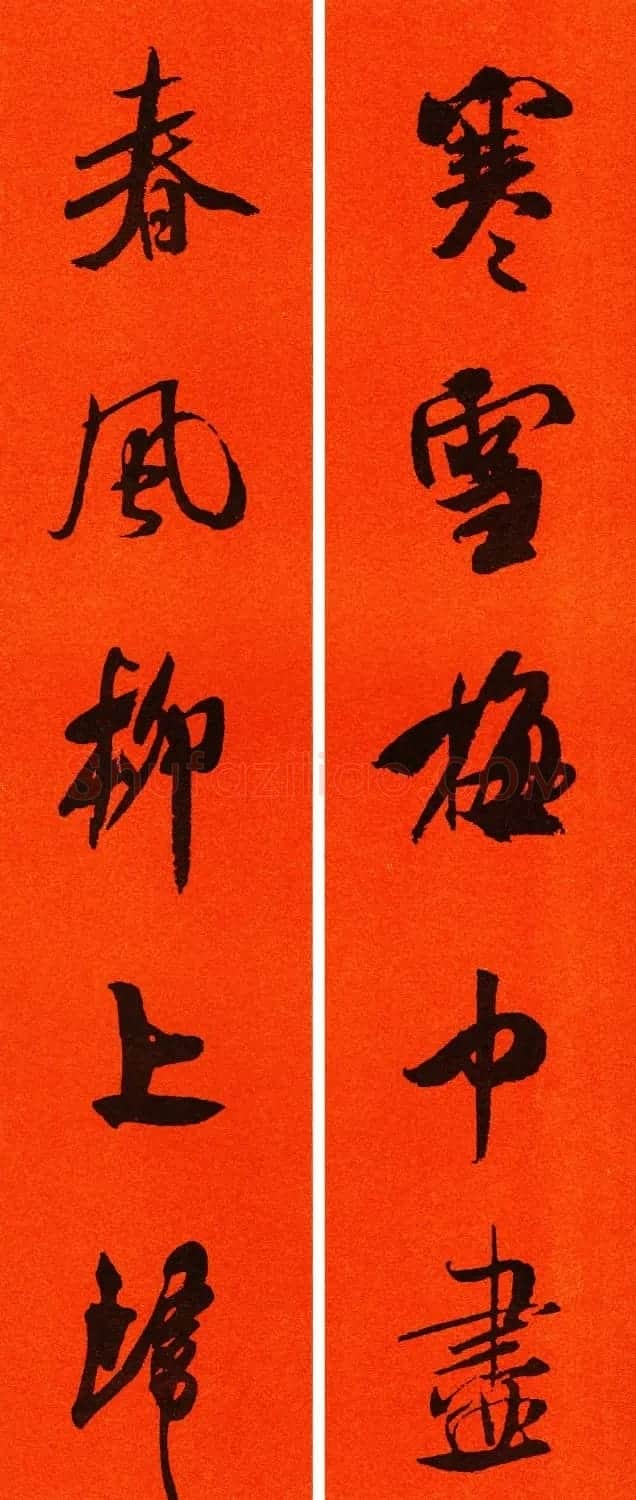 寒雪梅中盡
春風柳上歸
shufaziliao.COM